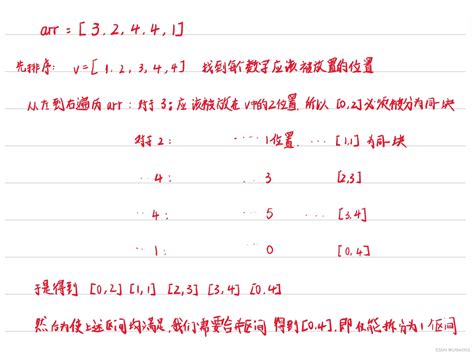 arr = [3, 2, 4, 4, 1]
先排序: v=[1, 2, 3, 4, 4] 找到每个数字应该被放置的位置
从左到右遍历 arr: 对于 3: 应该被放在 v中的2位置, 所以 [0,2]必须被分为同一块
对于 2: ···· 1位置, ··· [1,1] 为同一块
·· 4: ··· 3 [2,3]
·· 4: ··· 5 ··· [3,4]
·· 1: ··· 0 [0,4]
于是得到 [0,2] [1,1] [2,3] [3,4] [0,4]
然后为使上述区间均满足, 我们需要合并区间 得到[0,4], 即只能拆分为1个区间